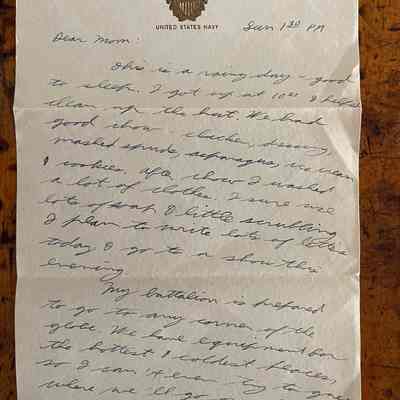 UNITED STATES NAVY
Sun 1:30 PM
Dear Mom:
This is a rainy day - good
to sleep. I got up at 10:00 & helped
clean up the hut. We had
good chow - chicken, dressing,
mashed spuds, asparagus, ice cream
& cookies. After chow I washed
a lot of clothes. I sure use
lots of soap & little scrubbing.
I plan to write lots of letters
today & go to a show this
evening.
My battalion is prepared
to go to any corner of the
globe. We have equipment for
the hottest & coldest places,
so I can't even try to guess
where we'll go